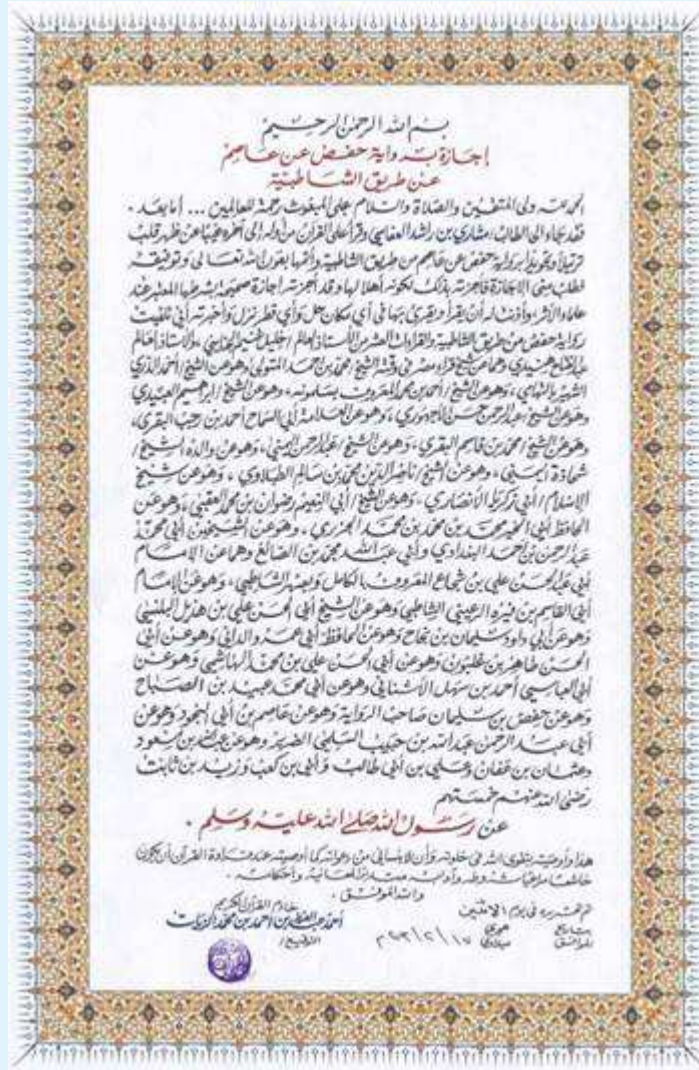 بسم الله الرحمن الرحيم
إجازة برواية حفص عن عاصم
عن طريق الشاطبية
الحمد لله ولي المتقين والصلاة والسلام على المبعوث رحمة للعالمين ... أما بعد .
فقد جاء إلي الطالب / مشاري بن راشد العفاسي وقرأ علي القرآن من أوله إلى آخره غيبا عن ظهر قلب
ترتيلا وتجويدا برواية حفص عن عاصم من طريق الشاطبية وأتمها بعون الله تعالى وتوفيقه
فطلب مني الإجازة فأجزته بذلك لكونه أهلا لها وقد أجزته إجازة صحيحة بشرطها المعتبر عند
علماء الأثر وأذنت له أن يقرأ ويقرئ بها في أي مكان حل وأي قطر نزل وأخبرته أني تلقيت
رواية حفص من طريق الشاطبية والقراءات العشر من الأستاذ العالم الجليل والأستاذ العالم
عبد الفتاح هنيدي وهما عن شيخ قراء مصر في وقته الشيخ / محمد بن أحمد المتولي وهو عن الشيخ / أحمد الدري
الشهير بالتهامي ، وهو عن الشيخ / أحمد بن محمد المعروف بسلمونه ، وهو عن الشيخ / إبراهيم العبيدي
وهو عن الشيخ / عبد الرحمن حسن الأجهوري ، وهو عن العلامة أبي السماح أحمد بن رجب البقري ،
وهو عن الشيخ / محمد بن قاسم البقري ، وهو عن الشيخ / عبد الرحمن اليمني ، وهو عن والده الشيخ /
شحاذة اليمني ، وهو عن الشيخ / ناصر الدين محمد بن سالم الطبلاوي ، وهو عن شيخ
الإسلام / أبي زكريا الأنصاري ، وهو عن الشيخ / أبي النعيم رضوان بن محمد العقبي ، وهو عن
الحافظ أبي الخير محمد بن محمد بن محمد الجزري ، وهو عن الشيخين أبي محمد
عبد الرحمن بن أحمد البغدادي وأبي عبد الله محمد بن الصائغ وهما عن الإمام
أبي عبد الحسن علي بن شجاع المعروف بالكامل وبصهر الشاطبي ، وهو عن الإمام
أبي القاسم بن فيره الرعيني الشاطبي وهو عن الشيخ أبي الحسن علي بن هذيل البلنسي
وهو عن أبي داود سليمان بن نجاح وهو عن الحافظ أبي عمرو الداني وهو عن أبي
الحسن طاهر بن غلبون وهو عن أبي الحسن علي بن محمد الهاشمي وهو عن
أبي العباس أحمد بن سهل الأشناني وهو عن أبي محمد عبيد بن الصباح
وهو عن حفص بن سليمان صاحب الرواية وهو عن عاصم بن أبي النجود وهو عن
أبي عبد الرحمن عبد الله بن حبيب السلمي الضرير وهو عن عبد الله بن مسعود
وعثمان بن عفان وعلي بن أبي طالب وأبي بن كعب وزيد بن ثابت
رضي الله عنهم خمستهم
عن رسول الله صلى الله عليه وسلم .
هذا وأوصيه بتقوى الله في خلوته وأن لا ينساني من دعواته كما أوصيته عند قراءة القرآن أن يكون
خاشعا مراعيا شروطه وآدابه لمعانيه وأحكامه .
والله الموفق ،
تم تحريره في يوم الاثنين
خادم القرآن الكريم
بتاريخ هجري
أحمد عبد العزيز بن أحمد بن محمد الزيات
الموافق ميلادي
التوقيع /